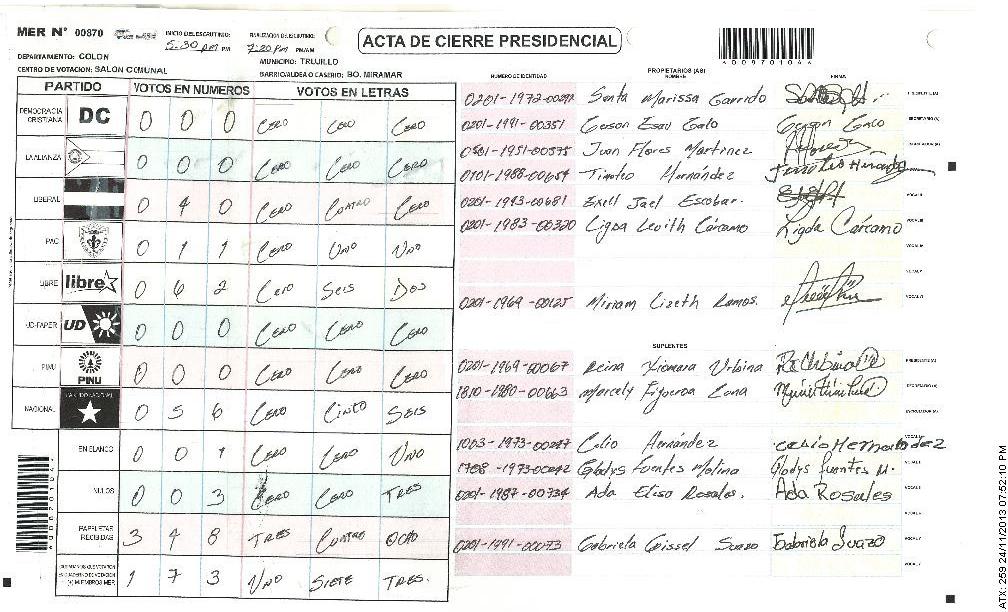 MER N° 00870
INICIO DEL ESCRUTINIO: 5:30 pm PM
FINALIZACION DEL ESCRUTINIO: 7:20 Pm PM/AM
ACTA DE CIERRE PRESIDENCIAL
DEPARTAMENTO: COLON
MUNICIPIO: TRUJILLO
CENTRO DE VOTACION: SALON COMUNAL
BARRIO/ALDEA O CASERIO: BO. MIRAMAR
PARTIDO VOTOS EN NUMEROS VOTOS EN LETRAS
DEMOCRACIA CRISTIANA DC 0 0 0 CERO CERO CERO
LA ALIANZA 0 0 0 CERO CERO CERO
LIBERAL 0 4 0 CERO CUATRO CERO
PAC 0 1 1 CERO UNO UNO
LIBRE libre 0 6 2 CERO SEIS DOS
UD-FAPER UD 0 0 0 CERO CERO CERO
PINU PINU 0 0 0 CERO CERO CERO
NACIONAL PARTIDO NACIONAL 0 5 6 CERO CINCO SEIS
EN BLANCO 0 0 1 CERO CERO UNO
NULOS 0 0 3 CERO CERO TRES
PAPELETAS RECIBIDAS 3 4 8 TRES CUATRO OCHO
CIUDADANOS QUE VOTARON EN CUADERNO DE VOTACION (+) MIEMBROS MER 1 7 3 UNO SIETE TRES.
PROPIETARIOS (AS)
NUMERO DE IDENTIDAD NOMBRE FIRMA
Santa Marissa Garrido
0201-1991-00351 Gerson Esau Galo
Juan Flores Martinez
0101-1988-00654 Timoteo Hernández Timoteo Hernandez
0201-1993-00681 Exell Jael Escobar.
0201-1983-00320 Ligda Levith Cárcamo Ligda Cárcamo
0201-1969-00125 Miriam Lizeth Ramos.
SUPLENTES
0201-1969-00067 Reina Xiomara Urbina
1810-1980-00663 Marcely Figueroa
1003-1973-00247 Celio Hernández Celio Hernandez
Gladys Fuentes Molina Gladys Fuentes M.
0201-1987-00734 Ada Elisa Rosales. Ada Rosales
0201-1991-00073 Gabriela Geissel Suazo Gabriela Suazo
ATX: 259 24/11/2013 07:52:10 PM